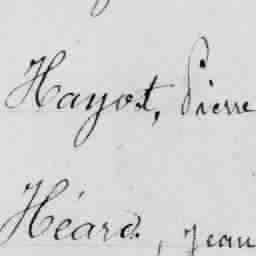 Hayot, Pierre
Héard, Jean